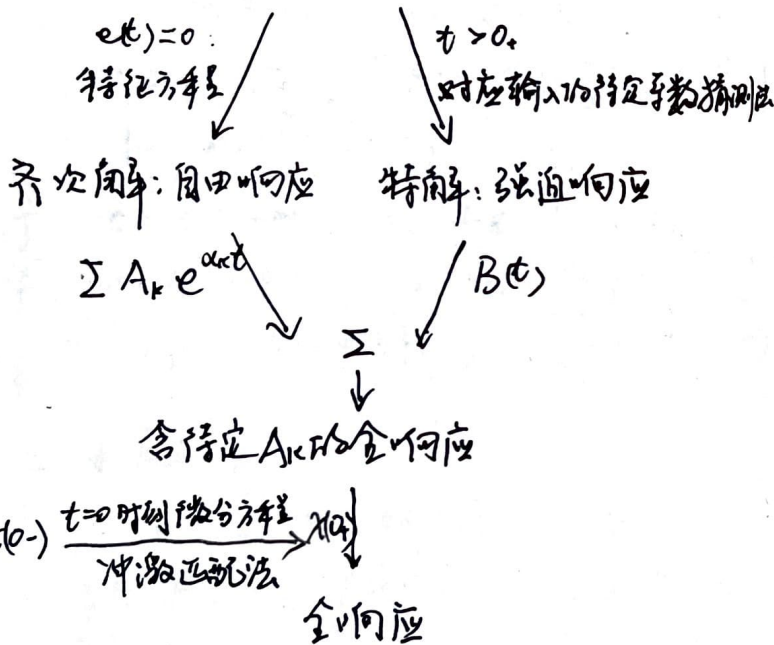 e(t)=0:
特征方程
t>0₊
对应输入的待定系数猜测法
齐次解:自由响应
特解:强迫响应
Σ Aₖ e^{αₖt}
B(t)
Σ
含待定Aₖ的全响应
(0-) t=0时刻微分方程 r(0₊)
冲激匹配法
全响应